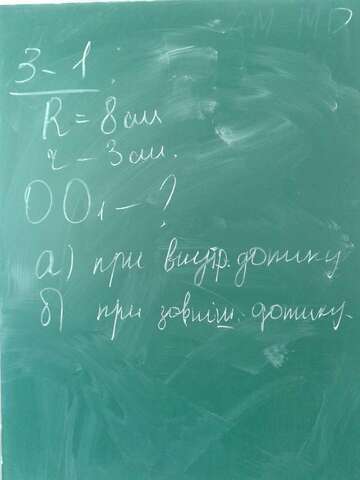 З-1:
R = 8 см
r - 3 см.
OO₁ - ?
а) при внутр. дотику
б) при зовніш. дотику.